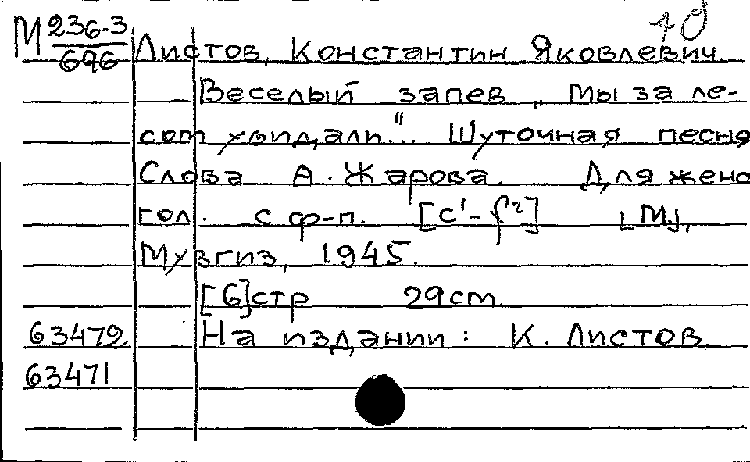 10
М 236-3
696
Листов, Константин Яковлевич.
Веселый запев „Мы за ле-
сом увидали"... Шуточная песня
Слова А. Жарова. Для женс
гол. с ф-п. [c¹-f²] [М],
Музгиз, 1945.
[6] стр 29 cm
63479 На издании: К. Листов
63471